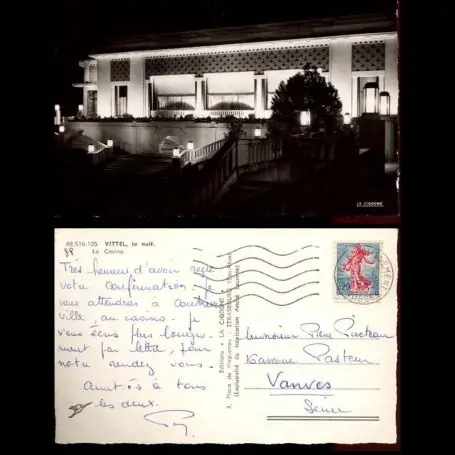 LA CIGOGNE
88.516-105 VITTEL, la nuit.
Le Casino.
88
Très heureux d'avoir reçu
votre confirmation. Je
vous attendrai à
ville, au casino. Je
vous écris plus longue-
ment par lettre, pour
notre rendez vous.
Amitiés à tous
les deux.
Editions LA CIGOGNE
5, Place de Haguenau - STRASBOURG
Monsieur Pierre
16 avenue Pasteur
Vanves
Seine
0,20